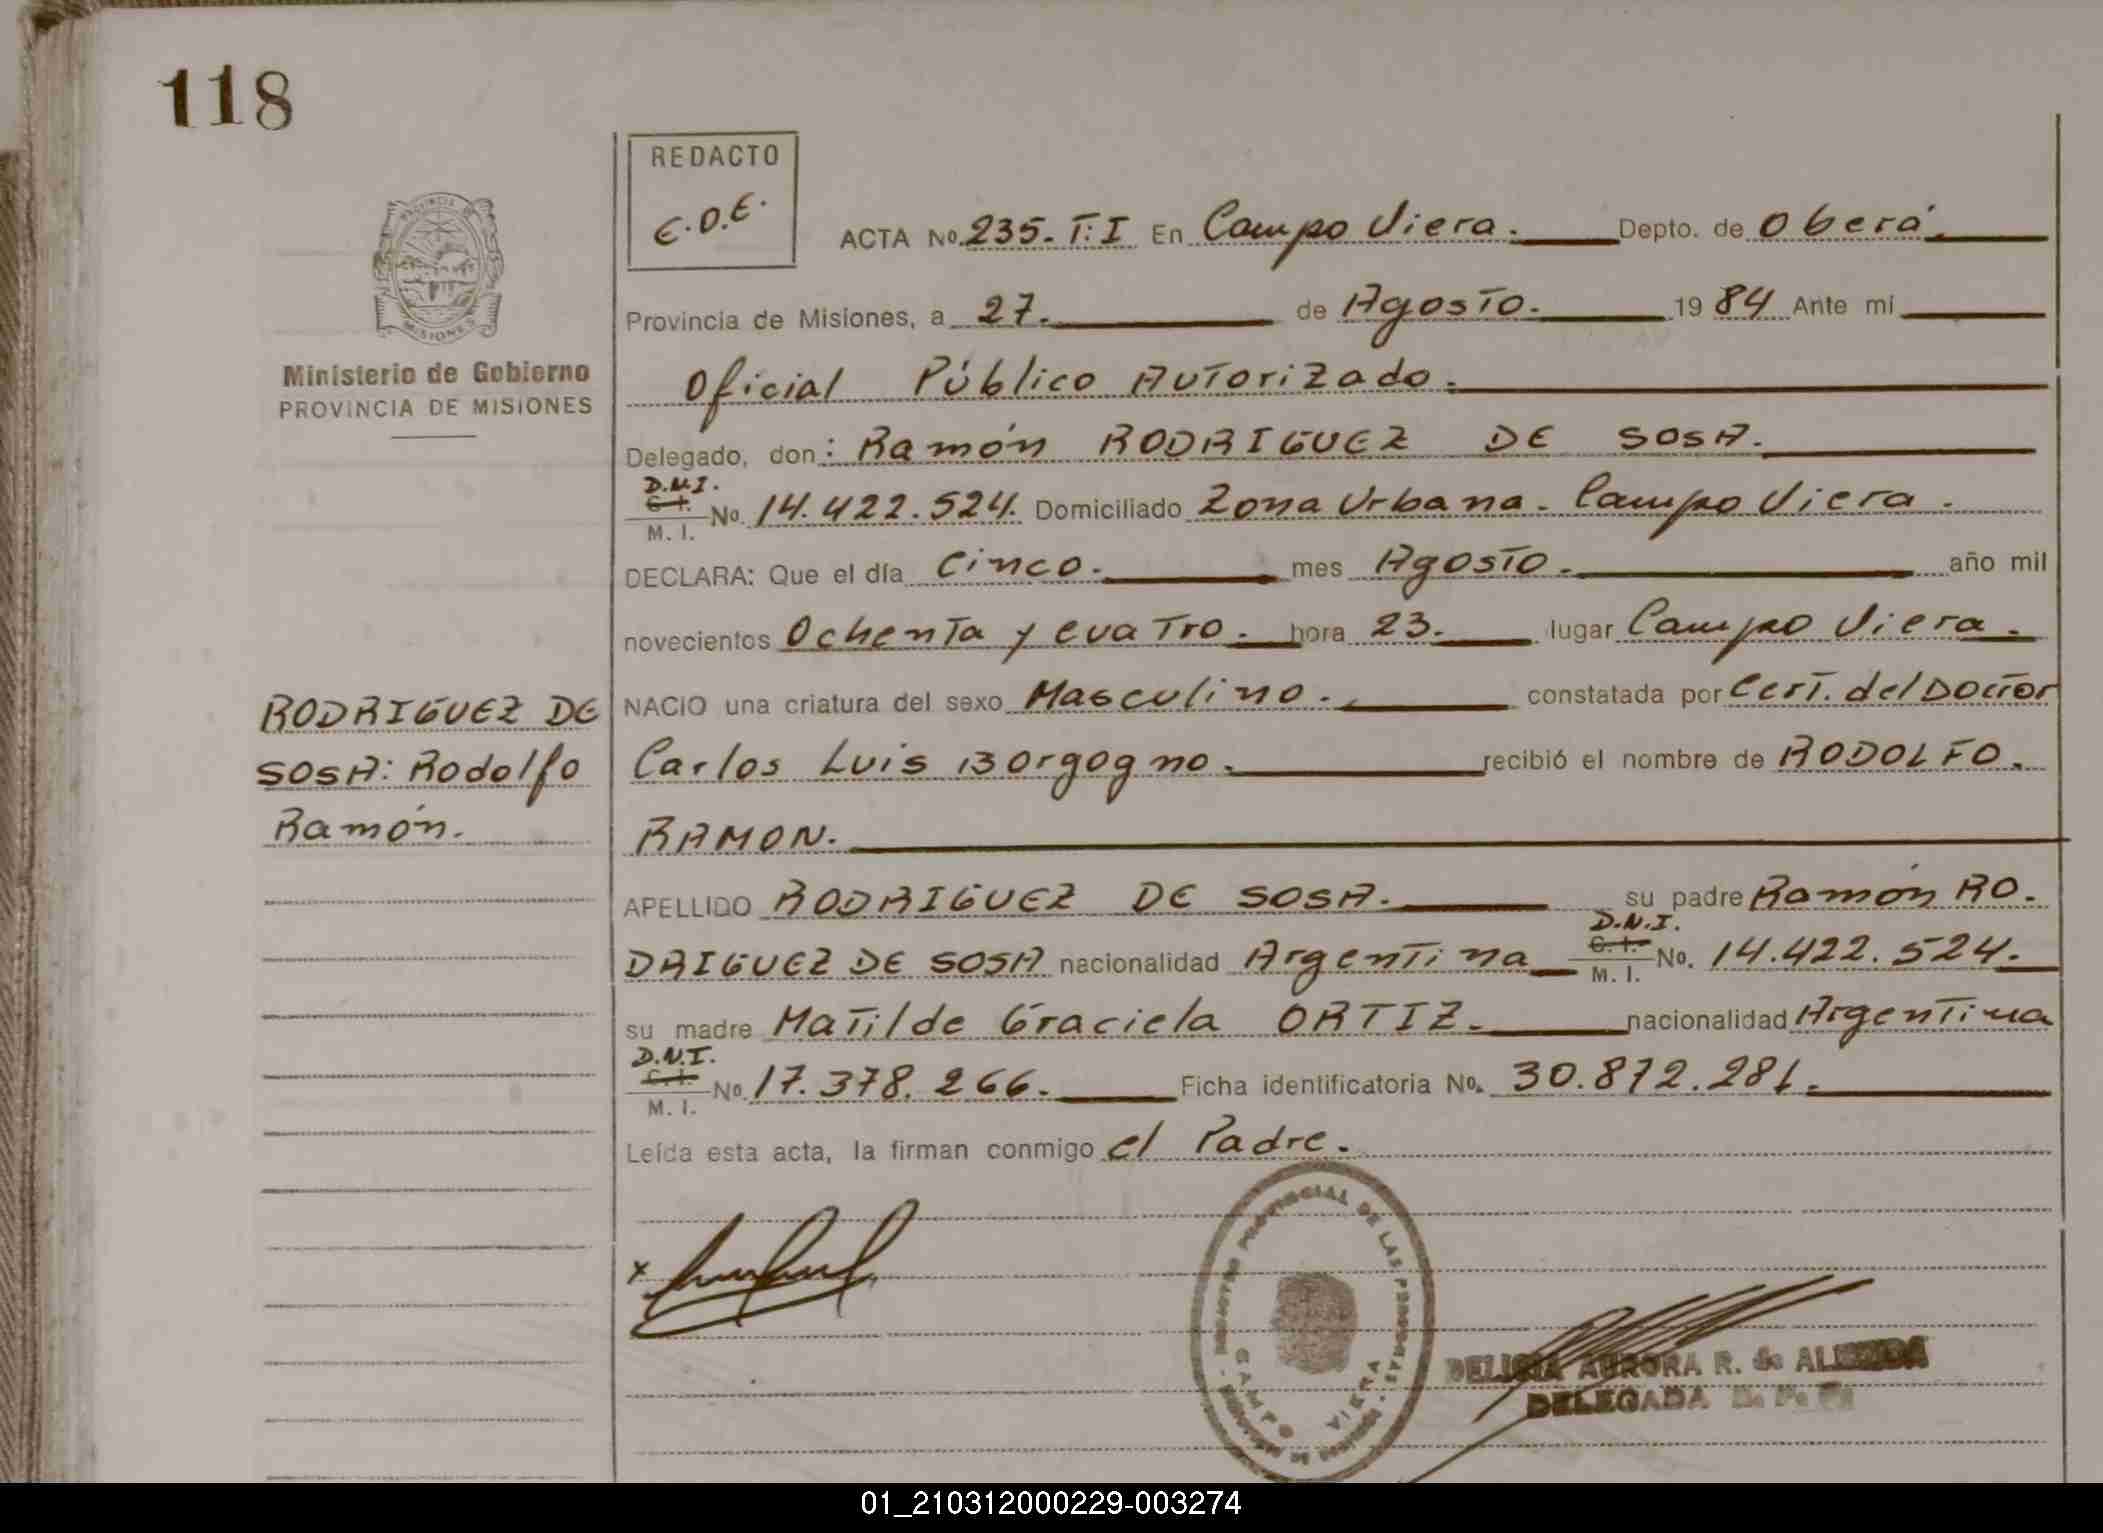 118
REDACTO
E.O.E.
PROVINCIA DE
MISIONES
Ministerio de Gobierno
PROVINCIA DE MISIONES
ACTA No. 235. T: I En Campo Viera. Depto. de Oberá.
Provincia de Misiones, a 27. de Agosto. 19 84 Ante mí
Oficial Público Autorizado.
Delegado, don: Ramón RODRIGUEZ DE SOSA.
D.N.I.
C. I.
M. I. No. 14.422.524. Domiciliado Zona Urbana. Campo Viera.
DECLARA: Que el día cinco. mes Agosto. año mil
novecientos Ochenta y cuatro. hora 23. lugar Campo Viera.
NACIO una criatura del sexo Masculino. constatada por Cert. del Doctor
Carlos Luis Borgogno. recibió el nombre de RODOLFO.
RAMON.
APELLIDO RODRIGUEZ DE SOSA. su padre Ramón RO.
D.N.I.
DRIGUEZ DE SOSA nacionalidad Argentina C. I. M. I. No. 14.422.524.
su madre Matilde Graciela ORTIZ. nacionalidad Argentina
D.N.I.
C. I.
M. I. No. 17.378.266. Ficha identificatoria No. 30.872.281.
Leída esta acta, la firman conmigo el Padre.
RODRIGUEZ DE
SOSA: Rodolfo
Ramón.
x
PROVINCIAL DE LAS PERSONAS
CAMPO VIERA
DELICIA AURORA R. de ALMEIDA
DELEGADA
01_210312000229-003274